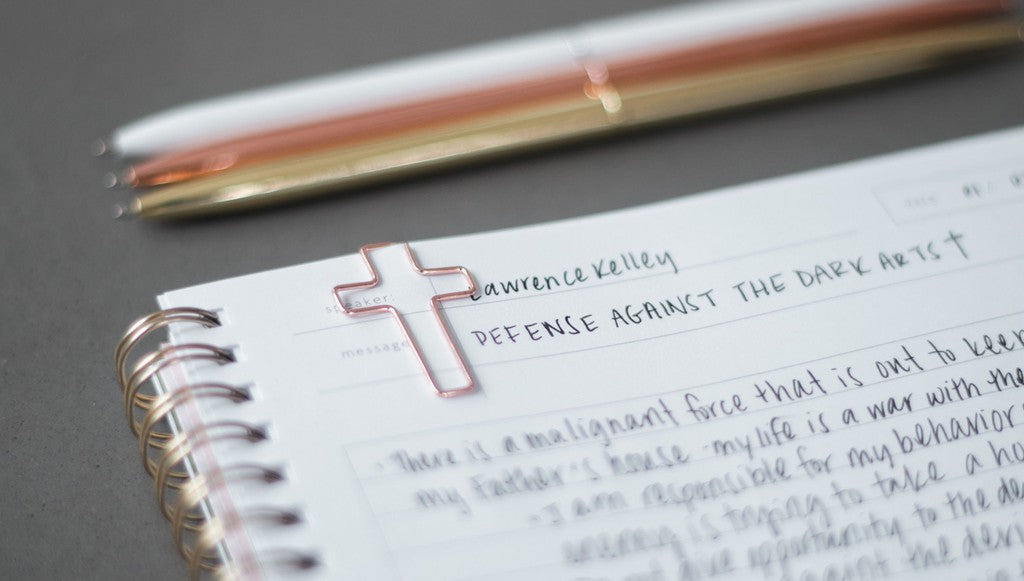 date
speaker: Lawrence Kelley
message: DEFENSE AGAINST THE DARK ARTS †
· There is a malignant force that is out to keep
my Father's house - my life is a war with the
- I am responsible for my behavior
enemy is trying to take a
not give opportunity to the
against the